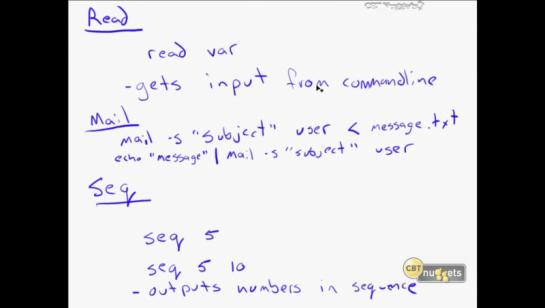 CBT nuggets
Read
read var
- gets input from commandline
Mail
mail -s "subject" user < message.txt
echo "message" | mail -s "subject" user
Seq
seq 5
seq 5 10
- outputs numbers in sequence
CBT nuggets